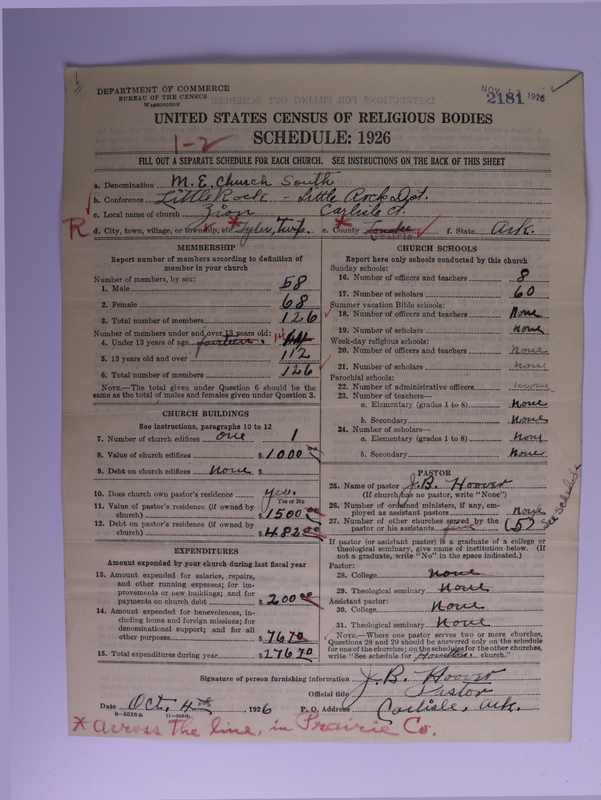 DEPARTMENT OF COMMERCE
BUREAU OF THE CENSUS
WASHINGTON
NOV 1926
2181
UNITED STATES CENSUS OF RELIGIOUS BODIES
1-2
SCHEDULE: 1926
FILL OUT A SEPARATE SCHEDULE FOR EACH CHURCH. SEE INSTRUCTIONS ON THE BACK OF THIS SHEET
a. Denomination M. E. Church South
b. Conference Little Rock - Little Rock Dist.
c. Local name of church Zion Carlisle Ct.
R d. City, town, village, or township, etc. Tyler, Twp. e. County * f. State Ark.
MEMBERSHIP
Report number of members according to definition of member in your church
Number of members, by sex:
1. Male 58
2. Female 68
3. Total number of members 126
Number of members under and over 13 years old:
4. Under 13 years of age fourteen. 14
5. 13 years old and over 112
6. Total number of members 126
NOTE.—The total given under Question 6 should be the same as the total of males and females given under Question 3.
CHURCH BUILDINGS
See instructions, paragraphs 10 to 12
7. Number of church edifices one 1
8. Value of church edifices $ 1000 00
9. Debt on church edifices none $
10. Does church own pastor's residence yes.
Yes or No
11. Value of pastor's residence (if owned by church) $ 1500 00
12. Debt on pastor's residence (if owned by church) $ 483 00
EXPENDITURES
Amount expended by your church during last fiscal year
13. Amount expended for salaries, repairs, and other running expenses; for improvements or new buildings; and for payments on church debt $ 200 00
14. Amount expended for benevolences, including home and foreign missions; for denominational support; and for all other purposes $ 76 70
15. Total expenditures during year $ 276 70
CHURCH SCHOOLS
Report here only schools conducted by this church
Sunday schools:
16. Number of officers and teachers 8
17. Number of scholars 60
Summer vacation Bible schools:
18. Number of officers and teachers None
19. Number of scholars none
Week-day religious schools:
20. Number of officers and teachers None
21. Number of scholars none
Parochial schools:
22. Number of administrative officers none
23. Number of teachers—
a. Elementary (grades 1 to 8) none
b. Secondary None
24. Number of scholars—
a. Elementary (grades 1 to 8) none
b. Secondary None
PASTOR
25. Name of pastor J. B. Hoover
(If church has no pastor, write "None")
26. Number of ordained ministers, if any, employed as assistant pastors None
27. Number of other churches served by the pastor or his assistants (5) See Schedule
If pastor (or assistant pastor) is a graduate of a college or theological seminary, give name of institution below. (If not a graduate, write "No" in the space indicated.)
Pastor:
28. College none
29. Theological seminary None
Assistant pastor:
30. College None
31. Theological seminary None
NOTE.—Where one pastor serves two or more churches, Questions 28 and 29 should be answered only on the schedule for one of the churches; on the schedules for the other churches, write "See schedule for Hamilton church."
Signature of person furnishing information J. B. Hoover
Official title Pastor
Date Oct, 4th, 1926 P. O. Address Carlisle, Ark.
* Across the line, in Prairie Co.